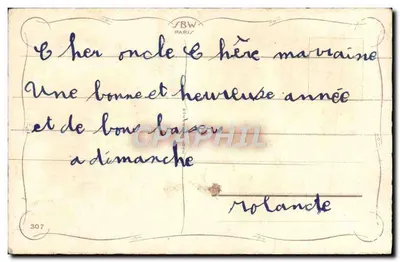 SBW
PARIS
Cher oncle Chère marraine
Une bonne et heureuse année
et de bons baiser
a dimanche
rolande
307
CPAPHIL